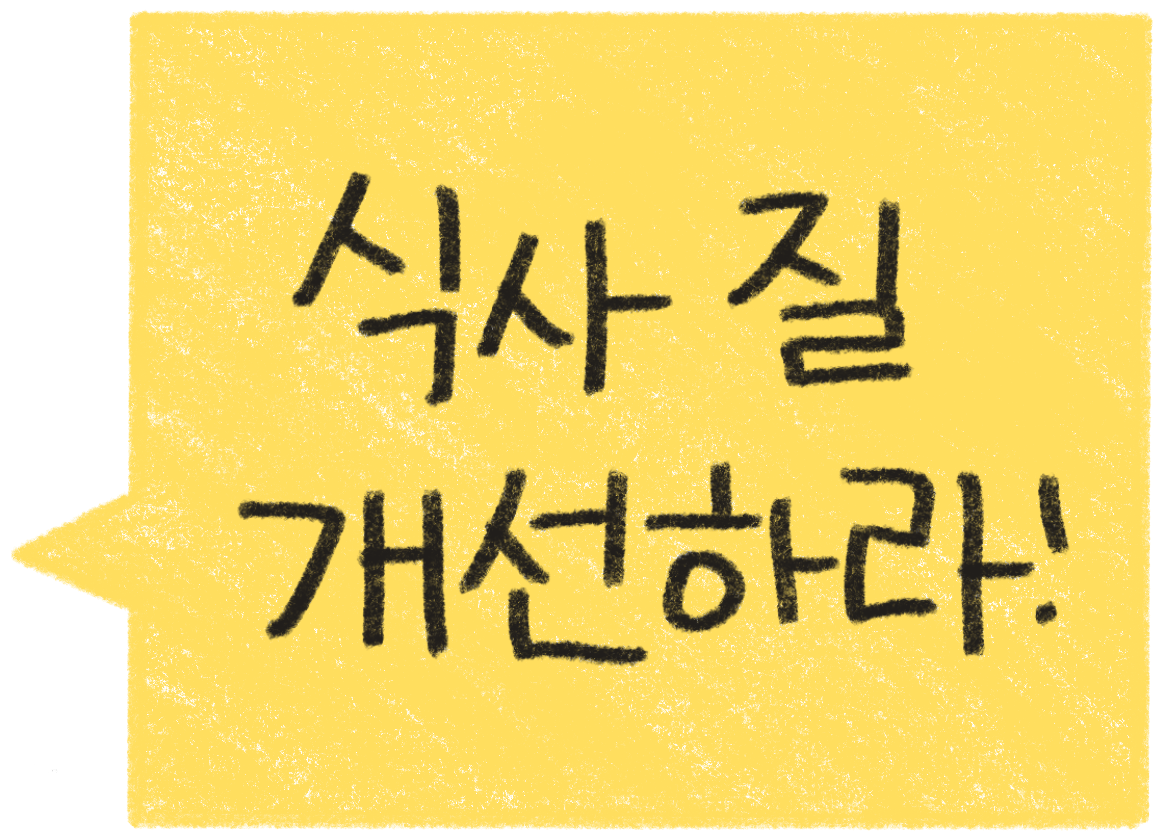 식사 질
개선하라!